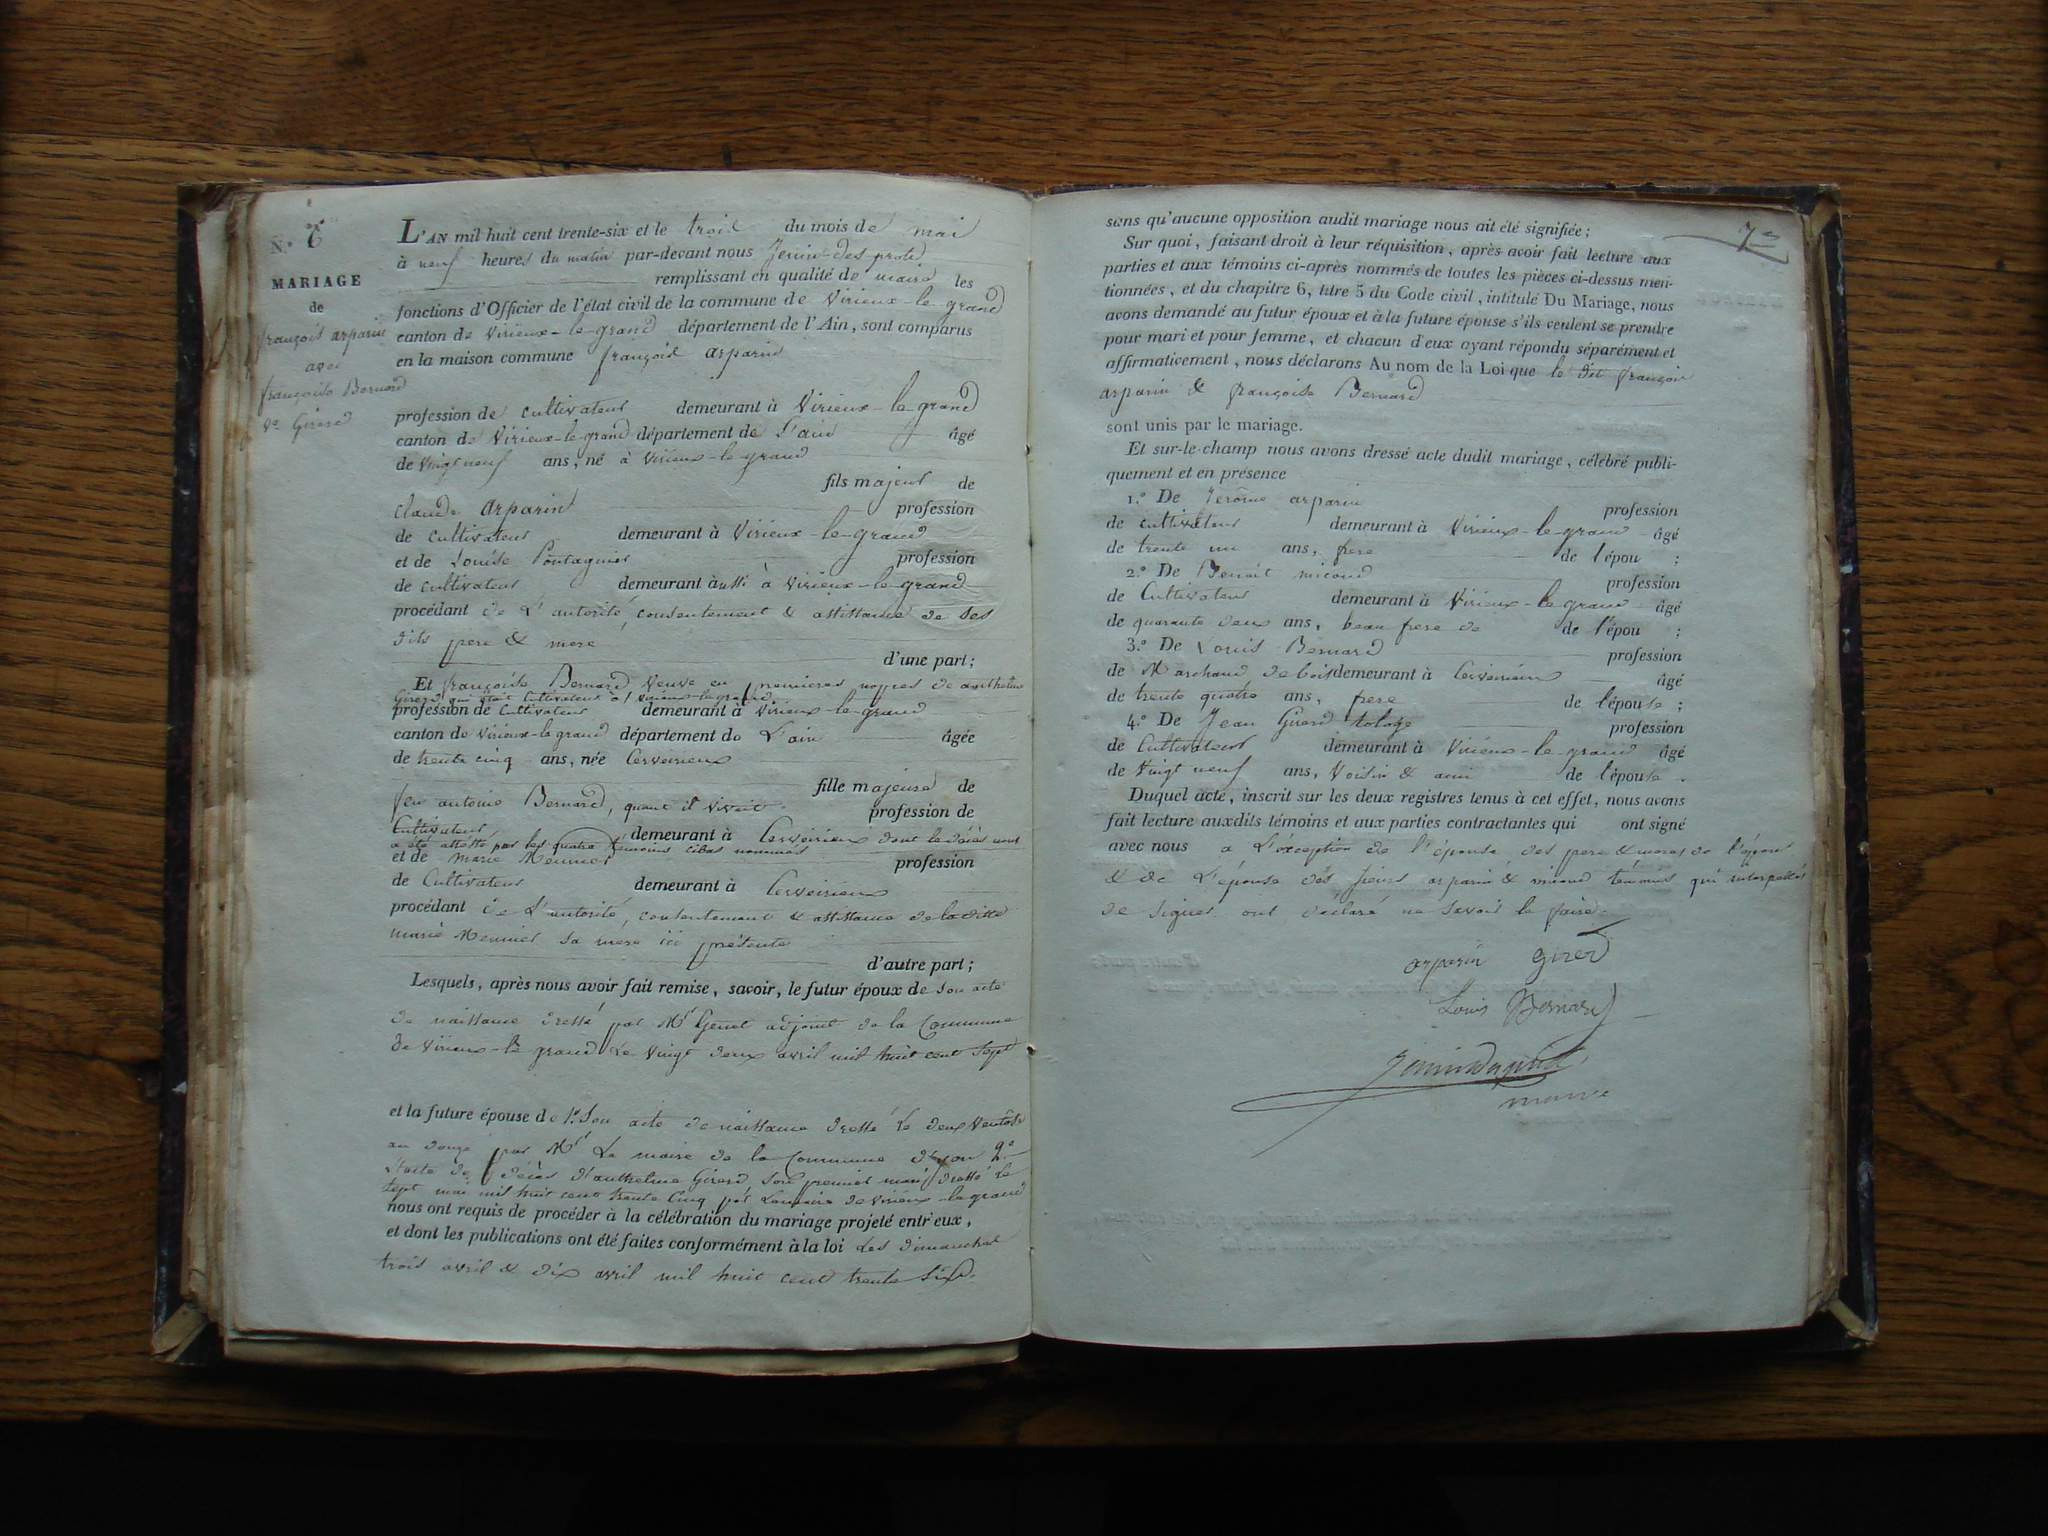 N.o 6
MARIAGE
de
françois arparin
avec
françoise Bernard
ve Girerd
L'AN mil huit cent trente-six et le trois du mois de mai
à neuf heures du matin par-devant nous
remplissant en qualité de maire les
fonctions d'Officier de l'état civil de la commune de Virieux-le-grand
canton de Virieux-le-grand département de l'Ain, sont comparus
en la maison commune françois arparin
profession de cultivateur demeurant à Virieux-le-grand
canton de Virieux-le-grand département de L'ain âgé
de Vingt neuf ans, né à Virieux-le-grand
fils majeur de
Claude arparin profession
de cultivateur demeurant à Virieux-le-grand
et de Louise Pontagnier profession
de cultivateur demeurant aussi à Virieux-le-grand
procédant de L'autorité, consentement & assistance de ses
dits pere & mere
d'une part;
Et françoise Bernard Veuve en premieres noppes de anthelme
Girerd qui était Cultivateur à Virieux-le-grand
profession de Cultivateur demeurant à Virieux-le-grand
canton de Virieux-le-grand département de L'ain âgée
de trente cinq ans, née Cerveirieux
fille majeure de
feu antoine Bernard, quant il vivait profession de
Cultivateur demeurant à Cerveirieux dont le décès nous
a été attesté par les quatre témoins cibas nommés
et de marie Meunier profession
de Cultivateur demeurant à Cerveirieux
procédant de L'autorité, consentement & assistance de la ditte
marie Meunier sa mere ici présente
d'autre part;
Lesquels, après nous avoir fait remise, savoir, le futur époux de Son acte
de naissance dressé par Mr Genet adjoint de la Commune
de Virieux-le grand Le Vingt deux avril mil huit cent Sept
et la future épouse de 1.o Son acte de naissance dressé le deux Ventôse
an douze par Mr Le maire de la Commune d'yon 2.o
L'acte de décès d'anthelme Girerd Son premier mari dressé le
sept mai mil huit cent trente Cinq par Lemaire de Virieux-le grand
nous ont requis de procéder à la célébration du mariage projeté entr'eux,
et dont les publications ont été faites conformément à la loi Les dimanches
trois avril & dix avril mil huit cent trente Six.
7
sans qu'aucune opposition audit mariage nous ait été signifiée;
Sur quoi, faisant droit à leur réquisition, après avoir fait lecture aux
parties et aux témoins ci-après nommés de toutes les pièces ci-dessus men-
tionnées, et du chapitre 6, titre 5 du Code civil, intitulé Du Mariage, nous
avons demandé au futur époux et à la future épouse s'ils veulent se prendre
pour mari et pour femme, et chacun d'eux ayant répondu séparément et
affirmativement, nous déclarons Au nom de la Loi que le dit françois
arparin & françoise Bernard
sont unis par le mariage.
Et sur-le-champ nous avons dressé acte dudit mariage, célébré publi-
quement et en présence
1.o De Jerôme arparin profession
de cultivateur demeurant à Virieux-le-grand âgé
de trente un ans, frere de l'épou ;
2.o De Benoit micoud profession
de Cultivateur demeurant à Virieux-le grand âgé
de quarante deux ans, beau frere de de l'épou ;
3.o De Louis Bernard profession
de Marchand de bois demeurant à Cerveirieux âgé
de trente quatre ans, frere de l'épouse ;
4.o De Jean Girerd profession
de Cultivateur demeurant à Virieux-le-grand âgé
de Vingt neuf ans, Voisin & ami de l'épouse .
Duquel acte, inscrit sur les deux registres tenus à cet effet, nous avons
fait lecture auxdits témoins et aux parties contractantes qui ont signé
avec nous a L'éxception de l'épouse des pere & mere de l'époux
& de L'épouse des freres arparin & micoud témoins qui interpellés
de Signer ont déclaré ne Savoir le faire.
arparin Girerd
Louis Bernard
maire